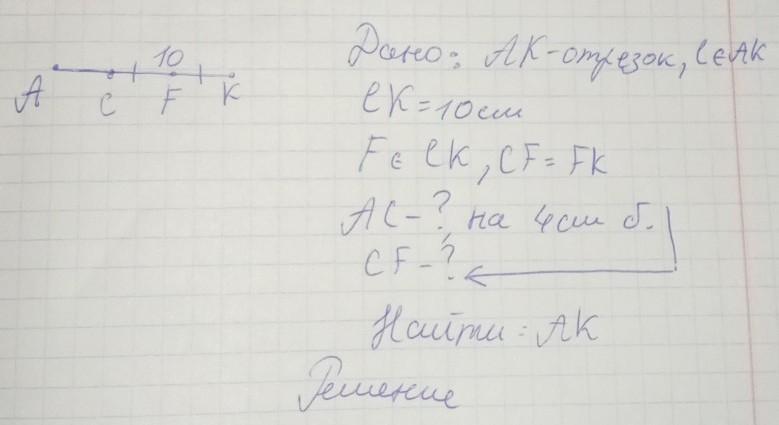 10
A C F K
Дано: AK-отрезок, C∈AK
CK=10см
F∈CK, CF=FK
AC-?, на 4см б.
CF-?
Найти: AK
Решение